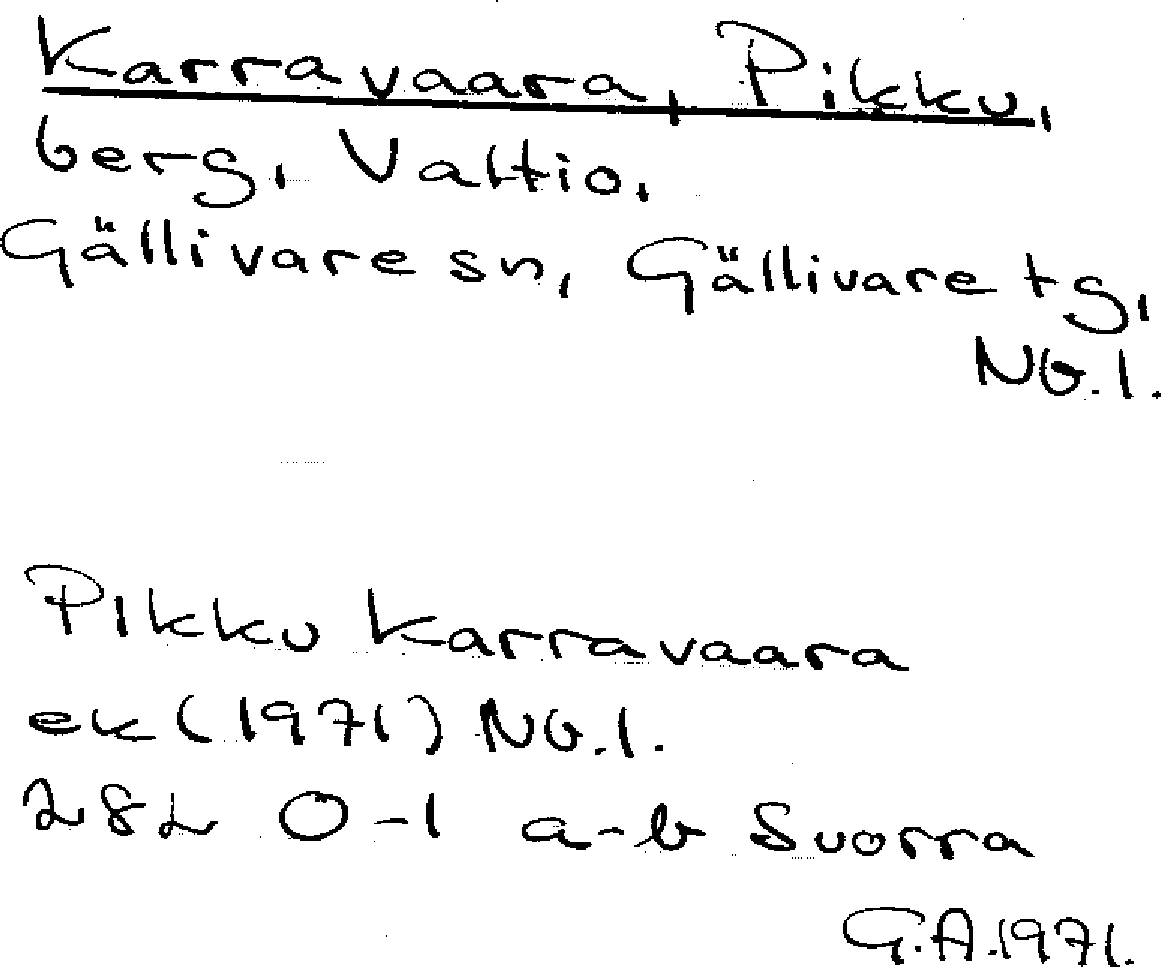 Karravaara, Pikku,
berg, Valtio,
Gällivare sn, Gällivare tg,
NB.1.
Pikku Karravaara
ek (1971) NB.1.
28L 0-1 a-b Suorra
G.A.1971.